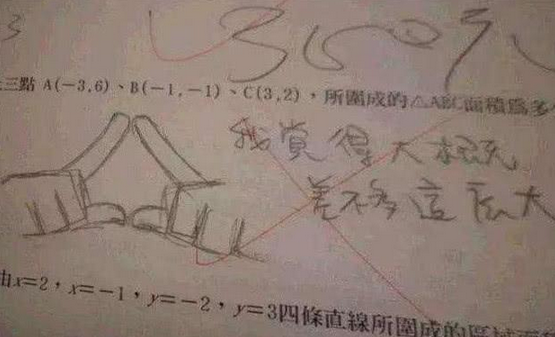 3
三點 A(-3,6)、B(-1,-1)、C(3,2),所圍成的△ABC面積為多
我覺得大概
差不多這麼大
由x=2,x=-1,y=-2,y=3四條直線所圍成的區域